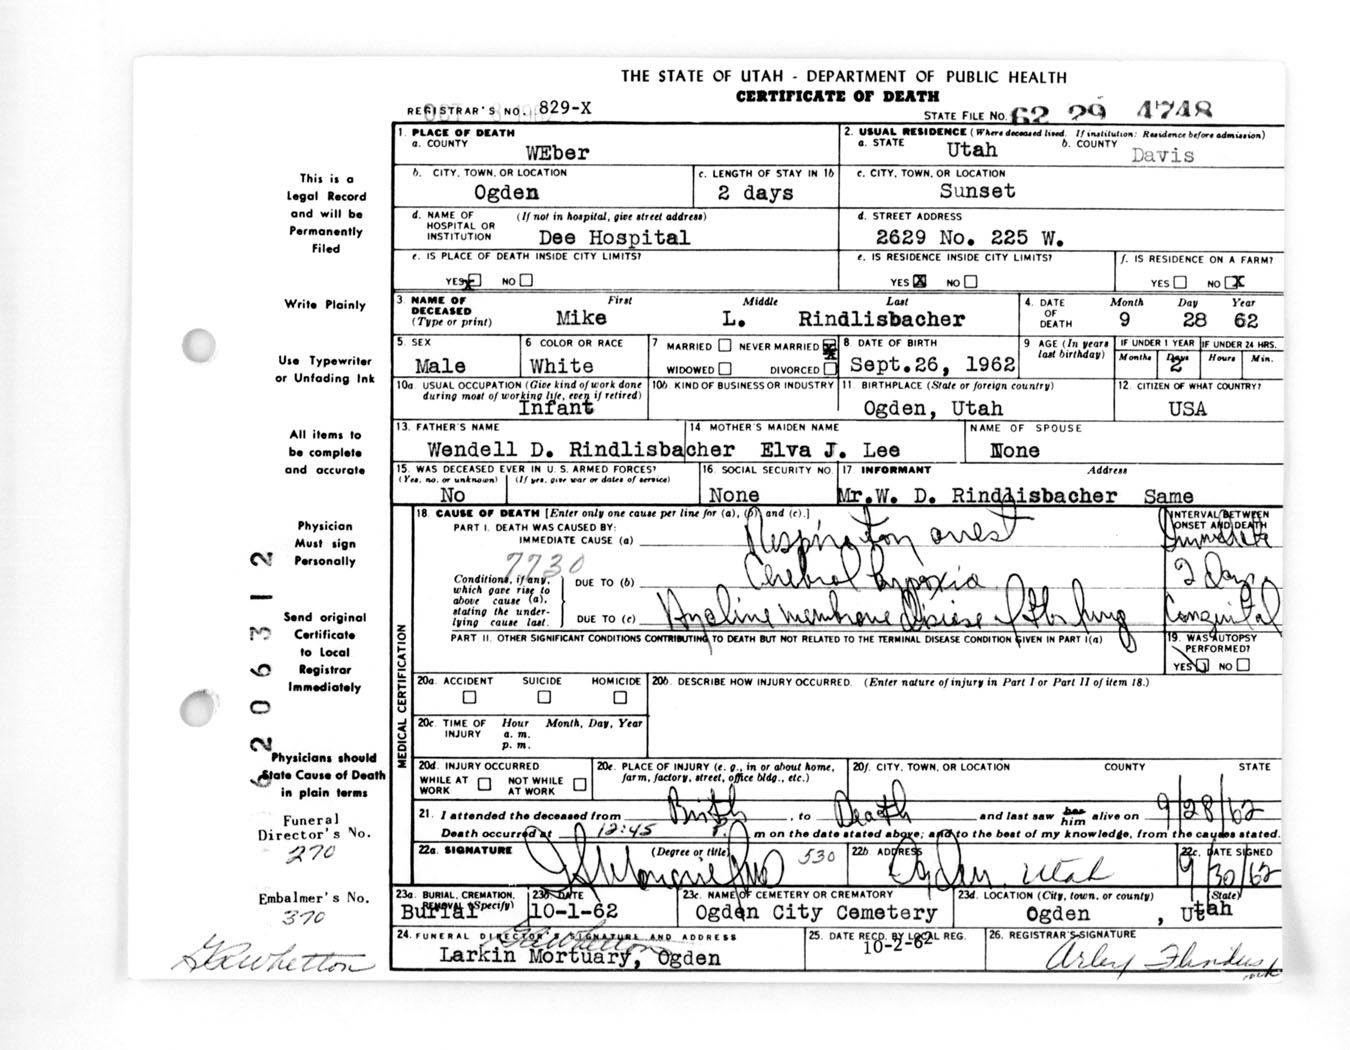 THE STATE OF UTAH - DEPARTMENT OF PUBLIC HEALTH
CERTIFICATE OF DEATH
REGISTRAR'S NO. 829-X
STATE FILE NO. 62 29 4748
1. PLACE OF DEATH
a. COUNTY
WEber
2. USUAL RESIDENCE (Where deceased lived. If institution: Residence before admission)
a. STATE Utah b. COUNTY Davis
b. CITY, TOWN, OR LOCATION
Ogden
c. LENGTH OF STAY IN 1b
2 days
c. CITY, TOWN, OR LOCATION
Sunset
d. NAME OF HOSPITAL OR INSTITUTION (If not in hospital, give street address)
Dee Hospital
d. STREET ADDRESS
2629 No. 225 W.
e. IS PLACE OF DEATH INSIDE CITY LIMITS?
YES X NO
e. IS RESIDENCE INSIDE CITY LIMITS?
YES X NO
f. IS RESIDENCE ON A FARM?
YES NO X
3. NAME OF DECEASED (Type or print)
First Middle Last
Mike L. Rindlisbacher
4. DATE OF DEATH
Month Day Year
9 28 62
5. SEX
Male
6 COLOR OR RACE
White
7 MARRIED NEVER MARRIED X
WIDOWED DIVORCED
8 DATE OF BIRTH
Sept.26, 1962
9 AGE (In years last birthday)
IF UNDER 1 YEAR IF UNDER 24 HRS.
Months Days Hours Min.
2
10a. USUAL OCCUPATION (Give kind of work done during most of working life, even if retired)
Infant
10b. KIND OF BUSINESS OR INDUSTRY
11 BIRTHPLACE (State or foreign country)
Ogden, Utah
12. CITIZEN OF WHAT COUNTRY?
USA
13. FATHER'S NAME
Wendell D. Rindlisbacher
14 MOTHER'S MAIDEN NAME
Elva J. Lee
NAME OF SPOUSE
None
15. WAS DECEASED EVER IN U.S. ARMED FORCES?
(Yes, no, or unknown) (If yes, give war or dates of service)
No
16. SOCIAL SECURITY NO.
None
17 INFORMANT Address
Mr.W. D. Rindlisbacher Same
MEDICAL CERTIFICATION
18. CAUSE OF DEATH [Enter only one cause per line for (a), (b), and (c).]
INTERVAL BETWEEN ONSET AND DEATH
PART I. DEATH WAS CAUSED BY:
IMMEDIATE CAUSE (a) Respiratory arrest Immediate
7730
Conditions, if any, which gave rise to above cause (a), stating the underlying cause last.
DUE TO (b) Cerebral hypoxia 2 Days
DUE TO (c) Hyaline membrane Disease of the lung Congenital
PART II. OTHER SIGNIFICANT CONDITIONS CONTRIBUTING TO DEATH BUT NOT RELATED TO THE TERMINAL DISEASE CONDITION GIVEN IN PART I(a)
19. WAS AUTOPSY PERFORMED?
YES NO
20a. ACCIDENT SUICIDE HOMICIDE
20b. DESCRIBE HOW INJURY OCCURRED. (Enter nature of injury in Part I or Part II of item 18.)
20c. TIME OF INJURY Hour Month, Day, Year
a. m.
p. m.
20d. INJURY OCCURRED
WHILE AT WORK NOT WHILE AT WORK
20e. PLACE OF INJURY (e. g., in or about home, farm, factory, street, office bldg., etc.)
20f. CITY, TOWN, OR LOCATION COUNTY STATE
21. I attended the deceased from Birth, to Death and last saw her him alive on 9/28/62
Death occurred at 12:45 P. m on the date stated above; and to the best of my knowledge, from the causes stated.
22a. SIGNATURE (Degree or title) 530
22b ADDRESS
Ogden, Utah
22c. DATE SIGNED
9/30/62
23a. BURIAL, CREMATION, REMOVAL (Specify)
Burial
23b. DATE
10-1-62
23c. NAME OF CEMETERY OR CREMATORY
Ogden City Cemetery
23d. LOCATION (City, town, or county) (State)
Ogden , Utah
24. FUNERAL DIRECTOR'S SIGNATURE AND ADDRESS
Larkin Mortuary, Ogden
25. DATE RECD. BY LOCAL REG.
10-2-62
26. REGISTRAR'S SIGNATURE
This is a
Legal Record
and will be
Permanently
Filed
Write Plainly
Use Typewriter
or Unfading Ink
All items to
be complete
and accurate
Physician
Must sign
Personally
Send original
Certificate
to Local
Registrar
Immediately
Physicians should
State Cause of Death
in plain terms
6206312
Funeral
Director's No.
270
Embalmer's No.
370
G R Whetton